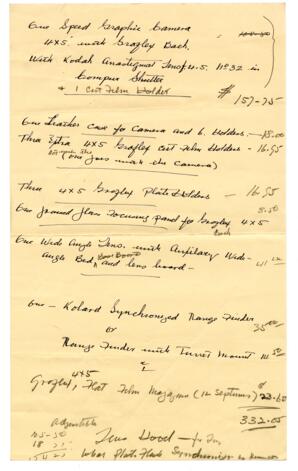 One Speed Graphic Camera
4x5" with Graflex Back.
With Kodak Anastigmat Lens f4.5. No 32 in
Compur Shutter
& 1 Cut Film Holder
$ 157-75
One Leather case for Camera and 6. Holders — 18.00
Three Extra 4x5 Graflex Cut Film Holders — 16.95
(one goes with the Camera)
Three 4x5 Graflex Plate Holders — 16.95
8.50
One ground glass focusing panel for Graflex 4x5
Back
One Wide Angle Lens. with Auxiliary Wide-
Angle Bed, and lens board — 41
One — Kolard Synchronized Range Finder
35
or
Range Finder with Turret Mount
4x5
Graflex, Film Magazine (12 Septums) $ 23.60
332.05
Adjustable
Lens Hood — for
18